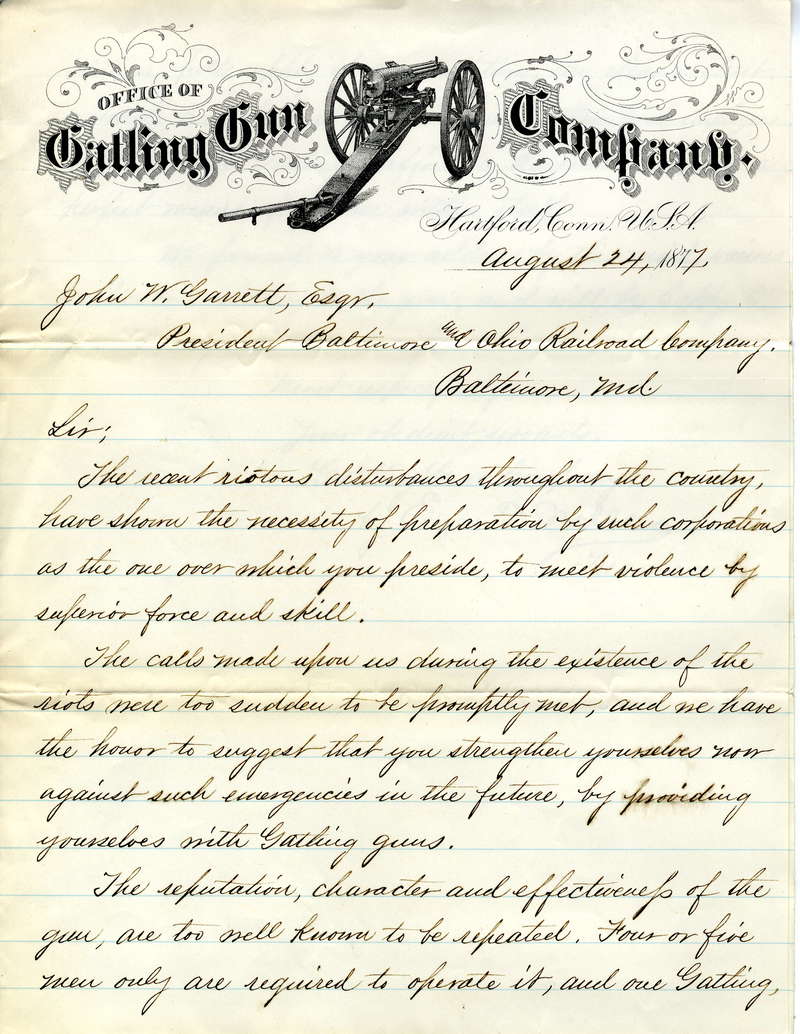 OFFICE OF
Gatling Gun Company.
Hartford, Conn. U.S.A.
August 24, 1877,
John W. Garrett, Esqr.
President Baltimore and Ohio Railroad Company.
Baltimore, Md.
Sir;
The recent riotous disturbances throughout the country,
have shown the necessity of preparation by such corporations
as the one over which you preside, to meet violence by
superior force and skill.
The calls made upon us during the existence of the
riots were too sudden to be promptly met, and we have
the honor to suggest that you strengthen yourselves now
against such emergencies in the future, by providing
yourselves with Gatling guns.
The reputation, character and effectiveness of the
gun, are too well known to be repeated. Four or five
men only are required to operate it, and one Gatling,